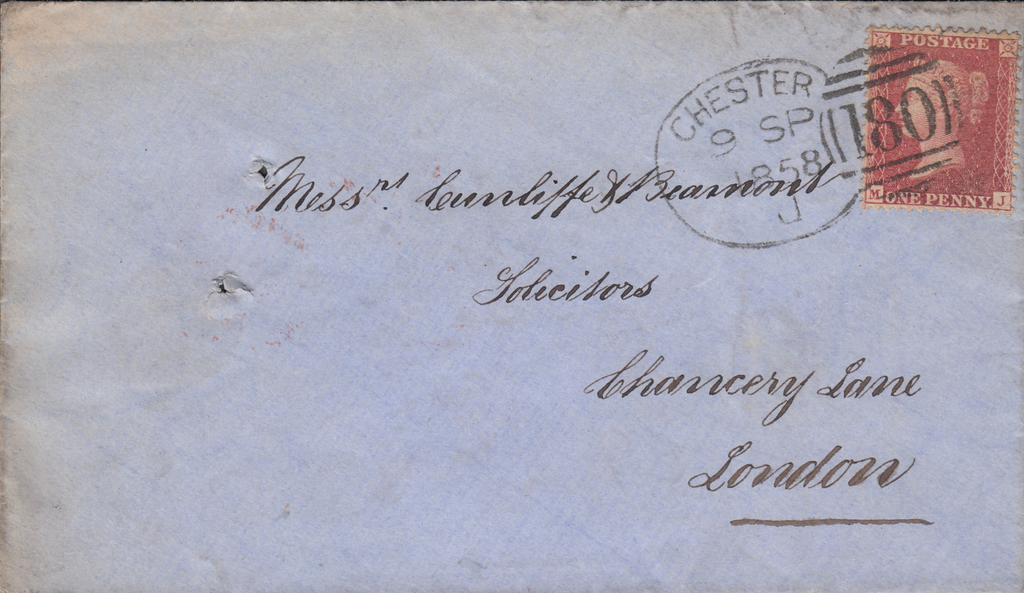 POSTAGE
CHESTER
9 SP
1858
J
180
M J
ONE PENNY
Messrs. Cunliffe & Beamont
Solicitors
Chancery Lane
London